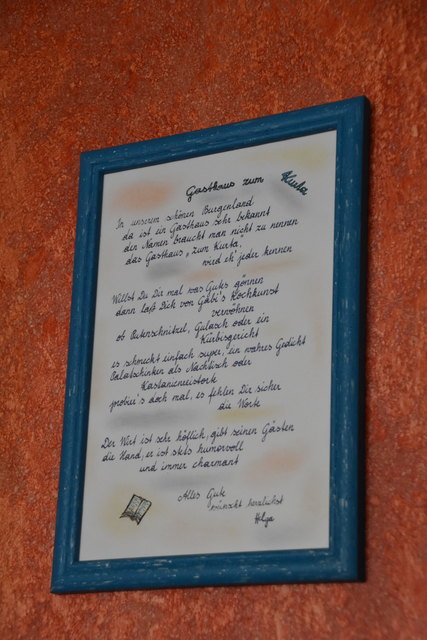 Gasthaus zum Kurta
In unserem schönen Burgenland
da ist ein Gasthaus sehr bekannt
den Namen braucht man nicht zu nennen
das Gasthaus „zum Kurta",
wird eh' jeder kennen
Willst Du Dir mal was Gutes gönnen
dann laß Dich von Gabi's Kochkunst
verwöhnen
ob Putenschnitzel, Gulasch oder ein
Kürbisgericht
es schmeckt einfach super, ein wahres Gedicht
Palatschinken als Nachtisch oder
Kastanienreistorte
probier's doch mal, es fehlen Dir sicher
die Worte
Der Wirt ist sehr höflich, gibt seinen Gästen
die Hand, er ist stets humorvoll
und immer charmant
Alles Gute
wünscht herzlichst
Helga